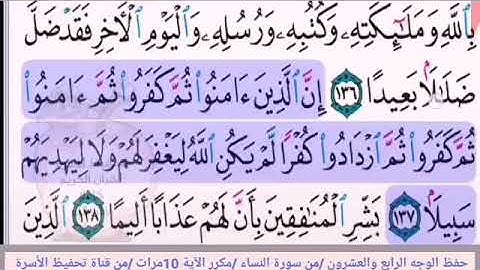 بِٱللَّهِ وَمَلَـٰٓئِكَتِهِۦ وَكُتُبِهِۦ وَرُسُلِهِۦ وَٱلْيَوْمِ ٱلْـَٔاخِرِ فَقَدْ ضَلَّ
ضَلَـٰلًۢا بَعِيدًا ١٣٦ إِنَّ ٱلَّذِينَ ءَامَنُوا۟ ثُمَّ كَفَرُوا۟ ثُمَّ ءَامَنُوا۟
ثُمَّ كَفَرُوا۟ ثُمَّ ٱزْدَادُوا۟ كُفْرًا لَّمْ يَكُنِ ٱللَّهُ لِيَغْفِرَ لَهُمْ وَلَا لِيَهْدِيَهُمْ
سَبِيلًۢا ١٣٧ بَشِّرِ ٱلْمُنَـٰفِقِينَ بِأَنَّ لَهُمْ عَذَابًا أَلِيمًا ١٣٨ ٱلَّذِينَ
حفظ الوجه الرابع والعشرون /من سورة النساء /مكرر الآية 10مرات /من قناة تحفيظ الأسرة